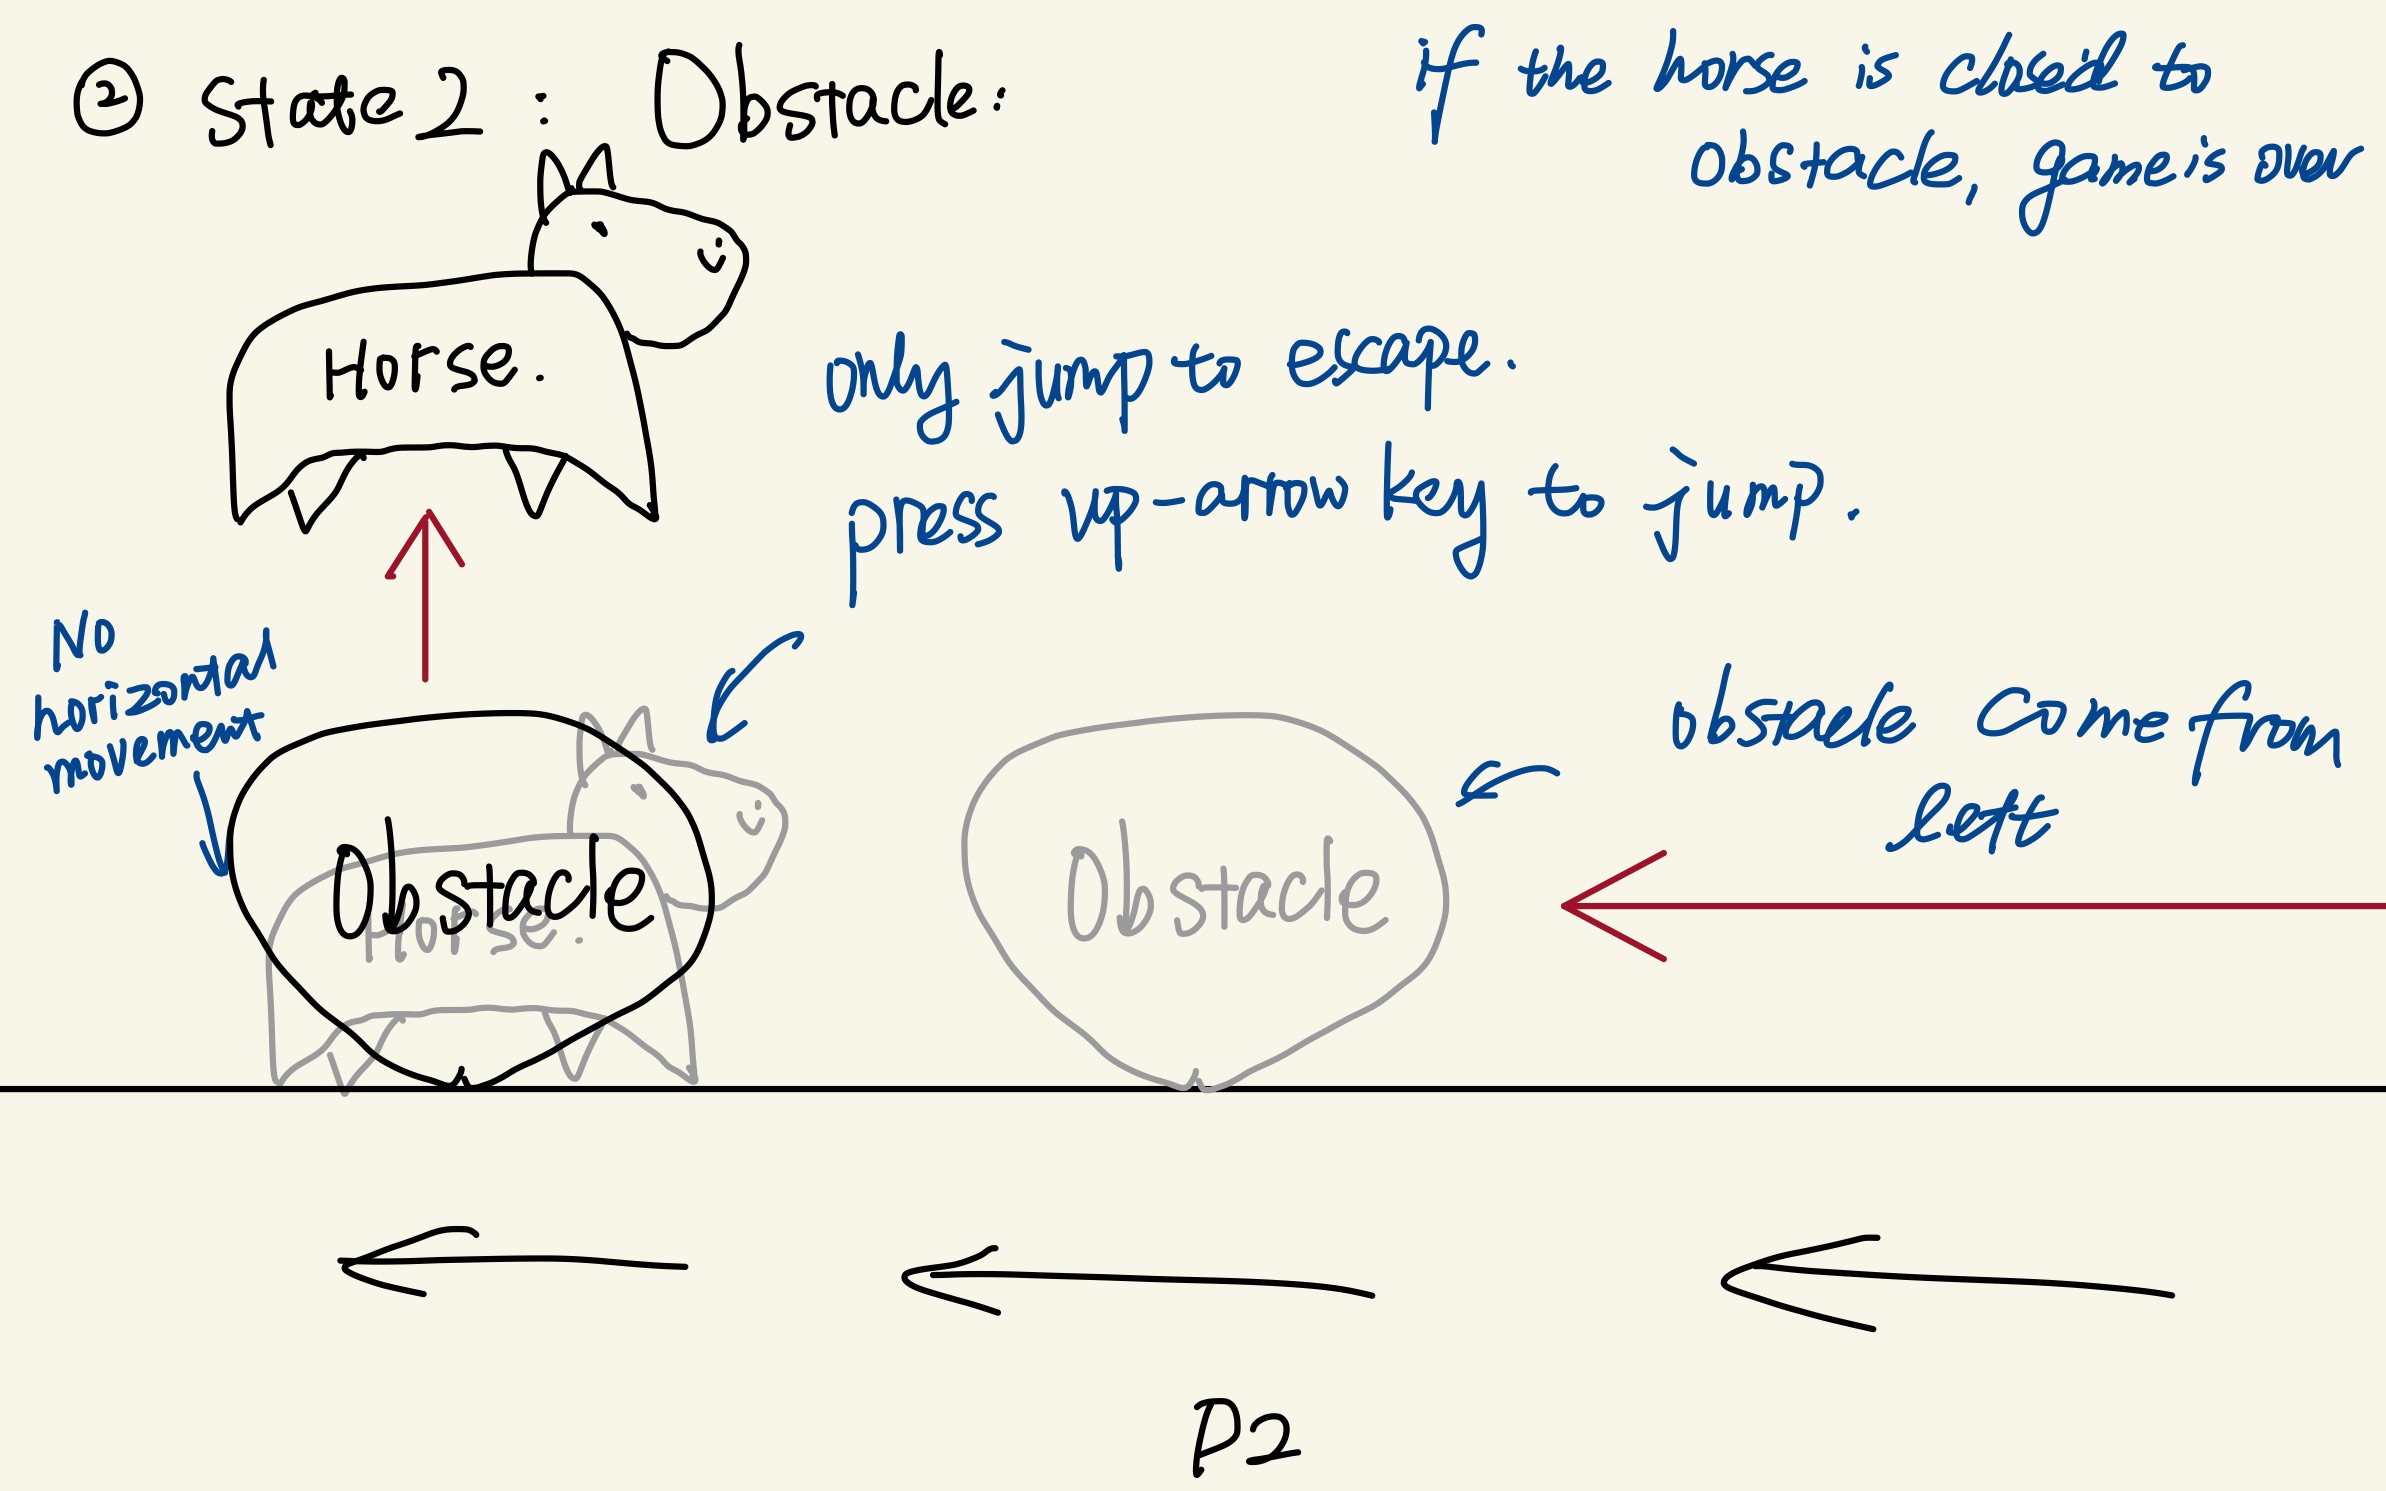 ② state 2 : Obstacle:
if the horse is closed to
obstacle, game is over
Horse.
only jump to escape.
press up-arrow key to jump.
No
horizontal
movement
obstacle come from
left
Obstacle
Horse.
Obstacle
P2